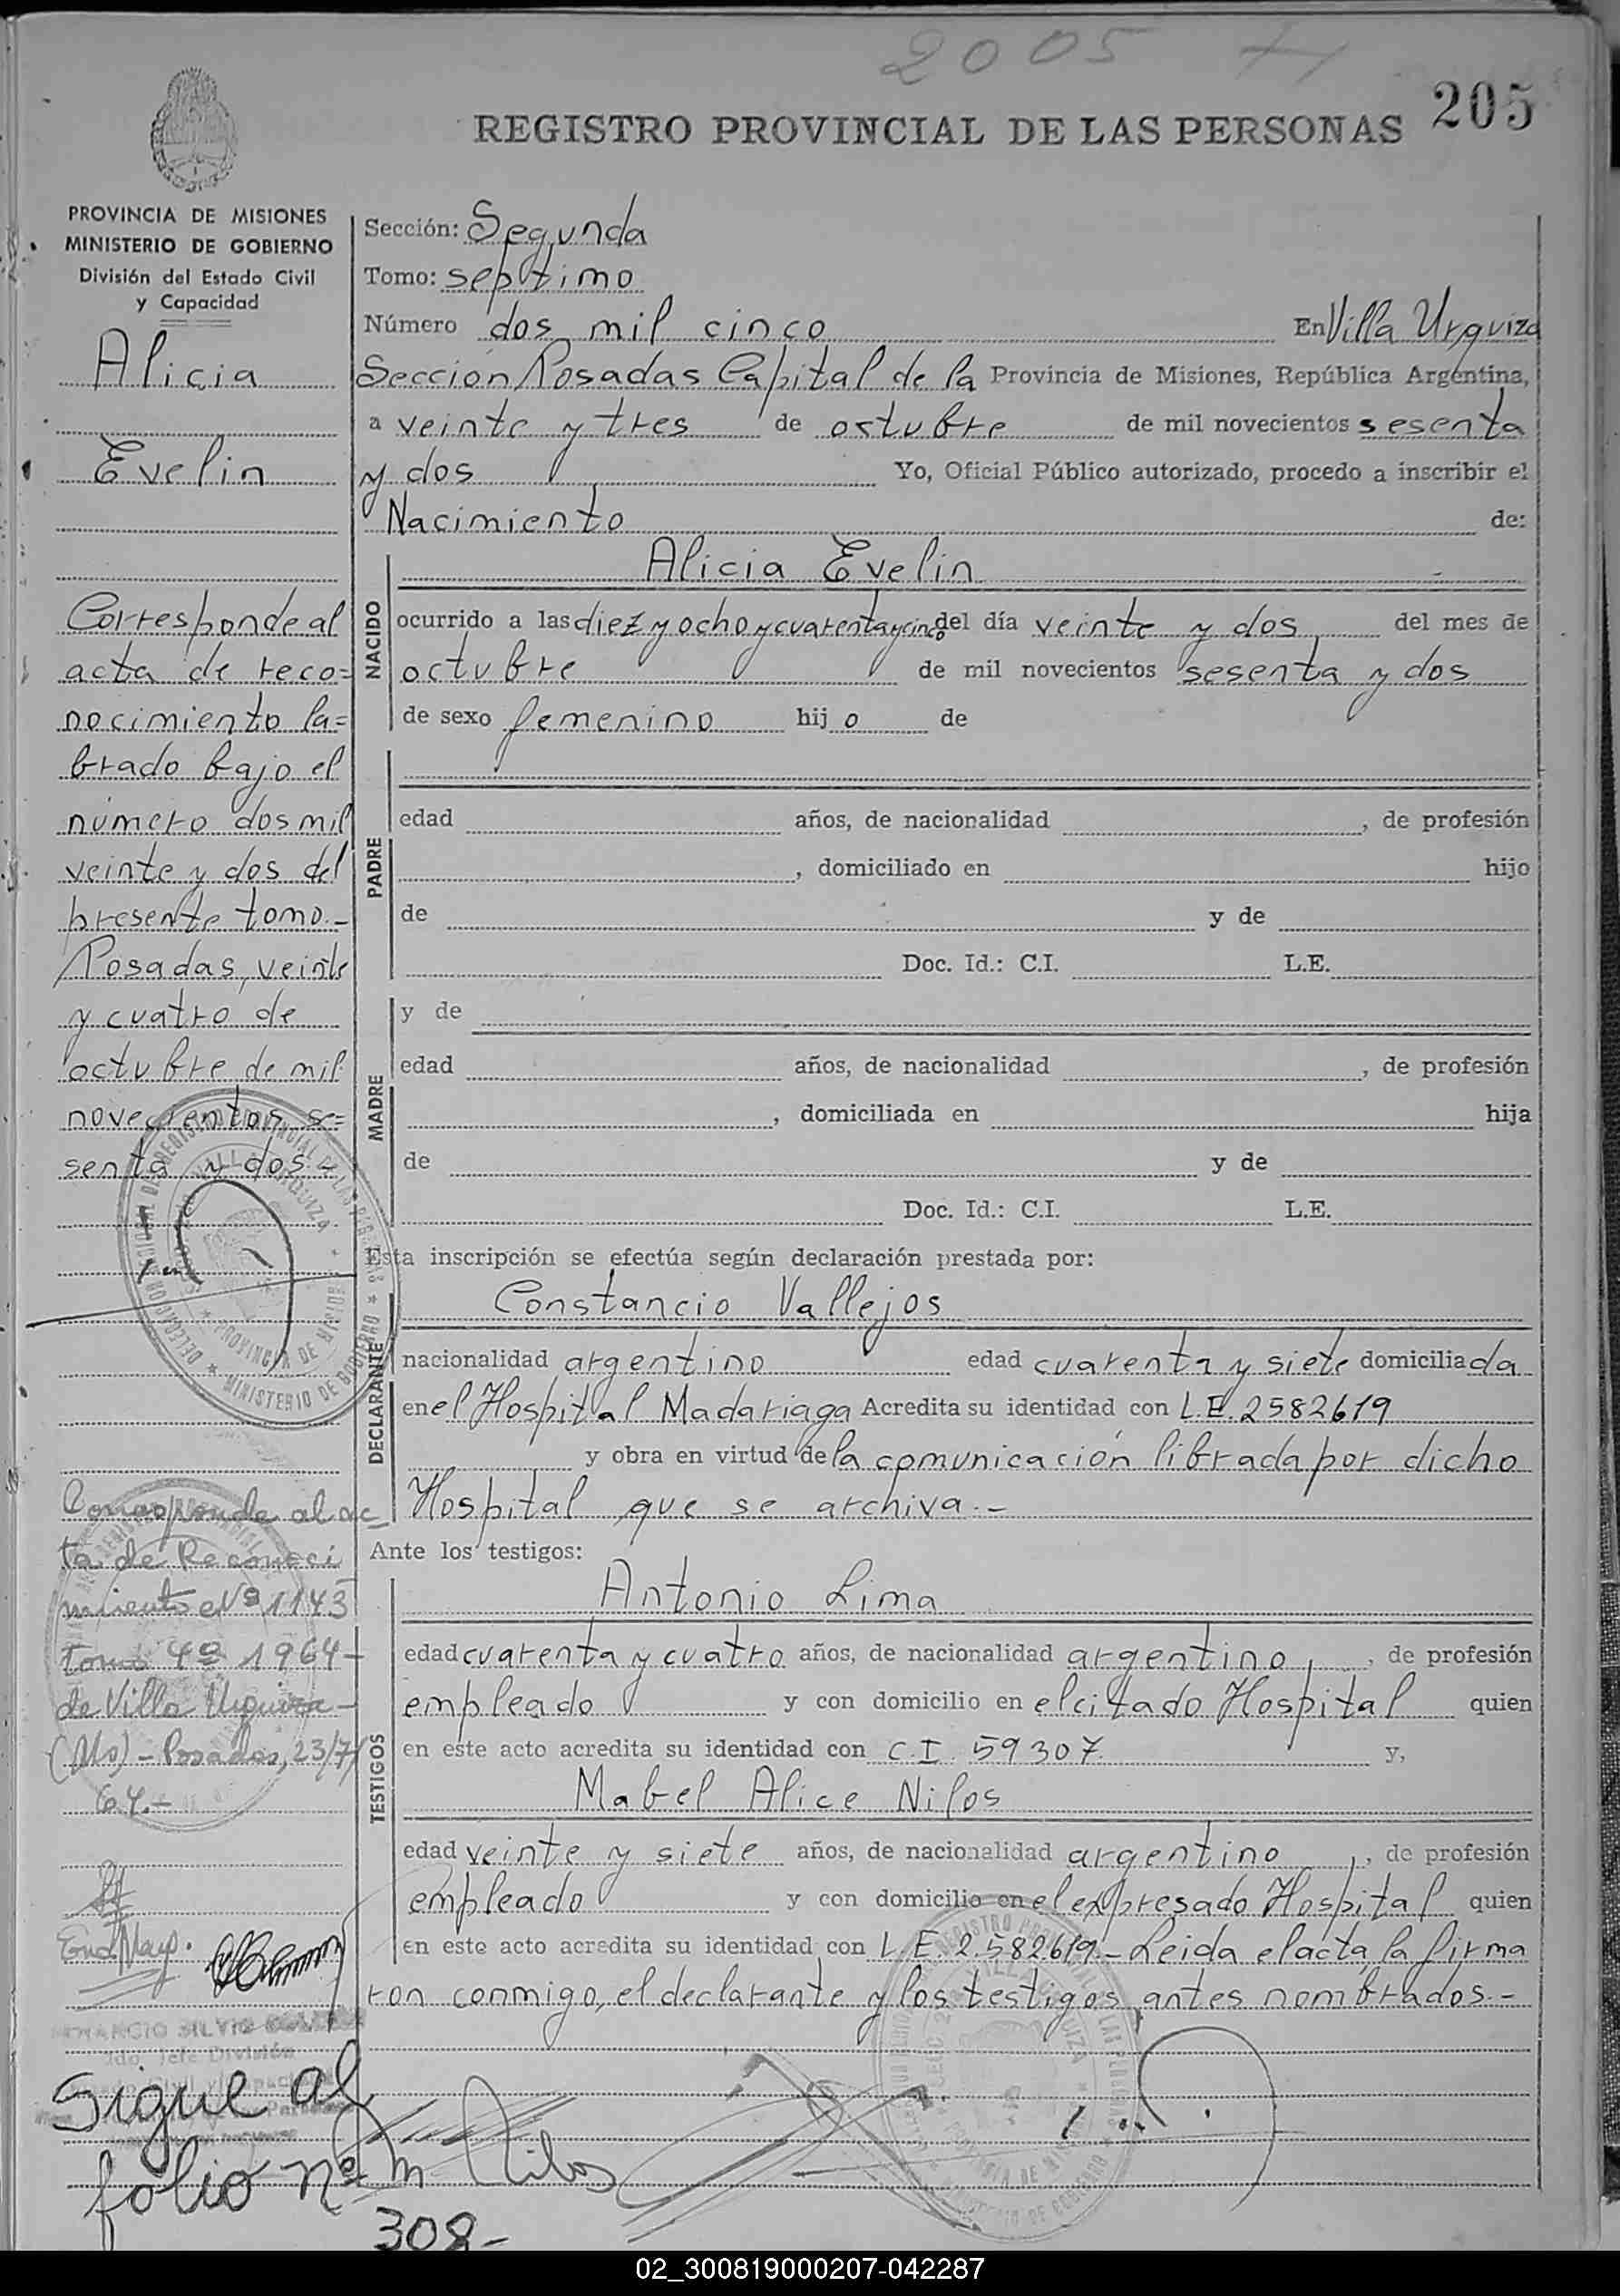 2005
205
REGISTRO PROVINCIAL DE LAS PERSONAS
PROVINCIA DE MISIONES
MINISTERIO DE GOBIERNO
División del Estado Civil
y Capacidad
Alicia
Evelin
Corresponde al
acta de reco=
nocimiento la=
brado bajo el
número dos mil
veinte y dos del
presente tomo.-
Posadas, veinte
y cuatro de
octubre de mil
novecientos se=
senta y dos.-
Corresponde al ac_
ta de Reconoci
miento Nº 1143
tomo 4º 1964-
de Villa Urquiza-
(Ms)-Posadas, 23/7/
64.-
Sigue al
folio nº
308-
Sección: Segunda
Tomo: septimo
Número dos mil cinco En Villa Urquiza
Sección Posadas Capital de la Provincia de Misiones, República Argentina,
a veinte y tres de octubre de mil novecientos sesenta
y dos Yo, Oficial Público autorizado, procedo a inscribir el
Nacimiento de:
NACIDO
Alicia Evelin
ocurrido a las diez y ocho y cuarenta y cinco del día veinte y dos del mes de
octubre de mil novecientos sesenta y dos
de sexo femenino hijo de
PADRE
edad años, de nacionalidad , de profesión
, domiciliado en hijo
de y de
Doc. Id.: C.I. L.E.
MADRE
y de
edad años, de nacionalidad , de profesión
, domiciliada en hija
de y de
Doc. Id.: C.I. L.E.
Esta inscripción se efectúa según declaración prestada por:
DECLARANTE
Constancio Vallejos
nacionalidad argentino edad cuarenta y siete domiciliada
en el Hospital Madariaga Acredita su identidad con L.E. 2582619
y obra en virtud de la comunicación librada por dicho
Hospital que se archiva.-
Ante los testigos:
TESTIGOS
Antonio Lima
edad cuarenta y cuatro años, de nacionalidad argentino, de profesión
empleado y con domicilio en el citado Hospital quien
en este acto acredita su identidad con C.I. 59307 y,
Mabel Alice Nilos
edad veinte y siete años, de nacionalidad argentino, de profesión
empleado y con domicilio en el expresado Hospital quien
en este acto acredita su identidad con L.E. 2.582619.- Leida el acta, la firma
ron conmigo, el declarante y los testigos antes nombrados.-
Nilos
02_300819000207-042287